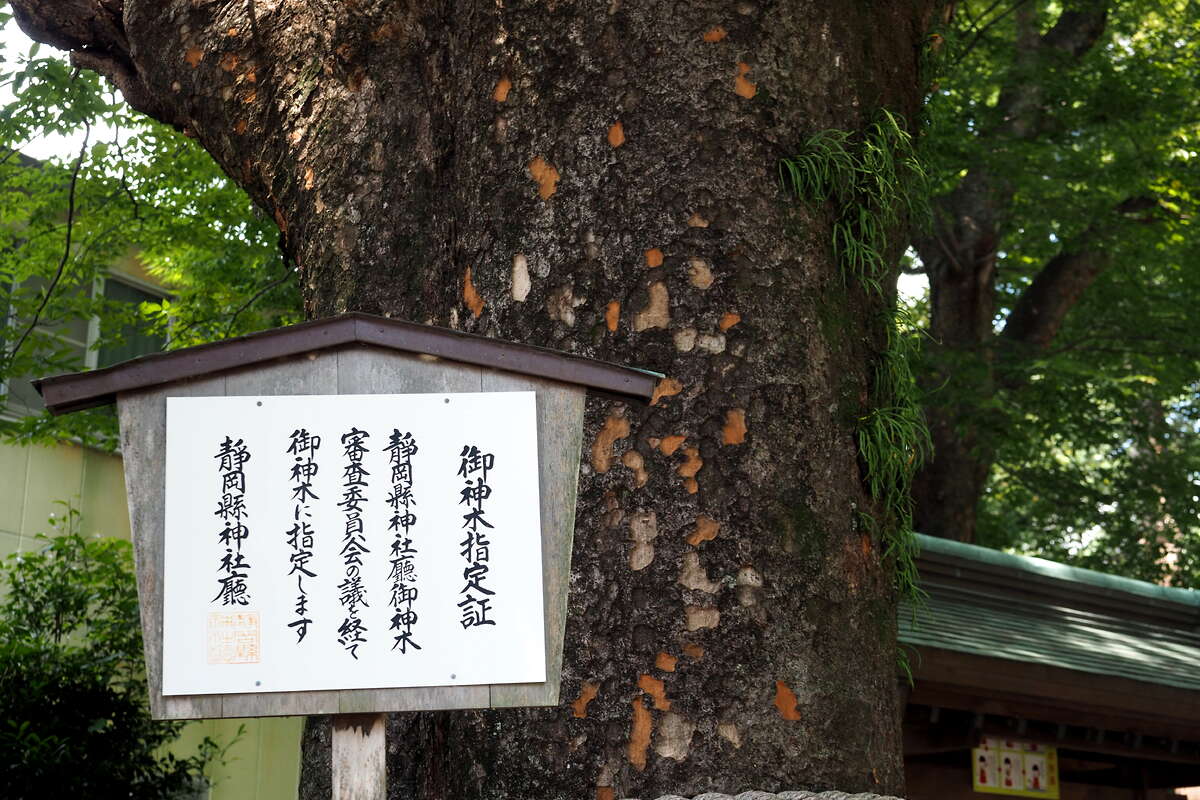 御神木指定証
靜岡縣神社廳御神木
審査委員会の議を経て
御神木に指定します
靜岡縣神社廳